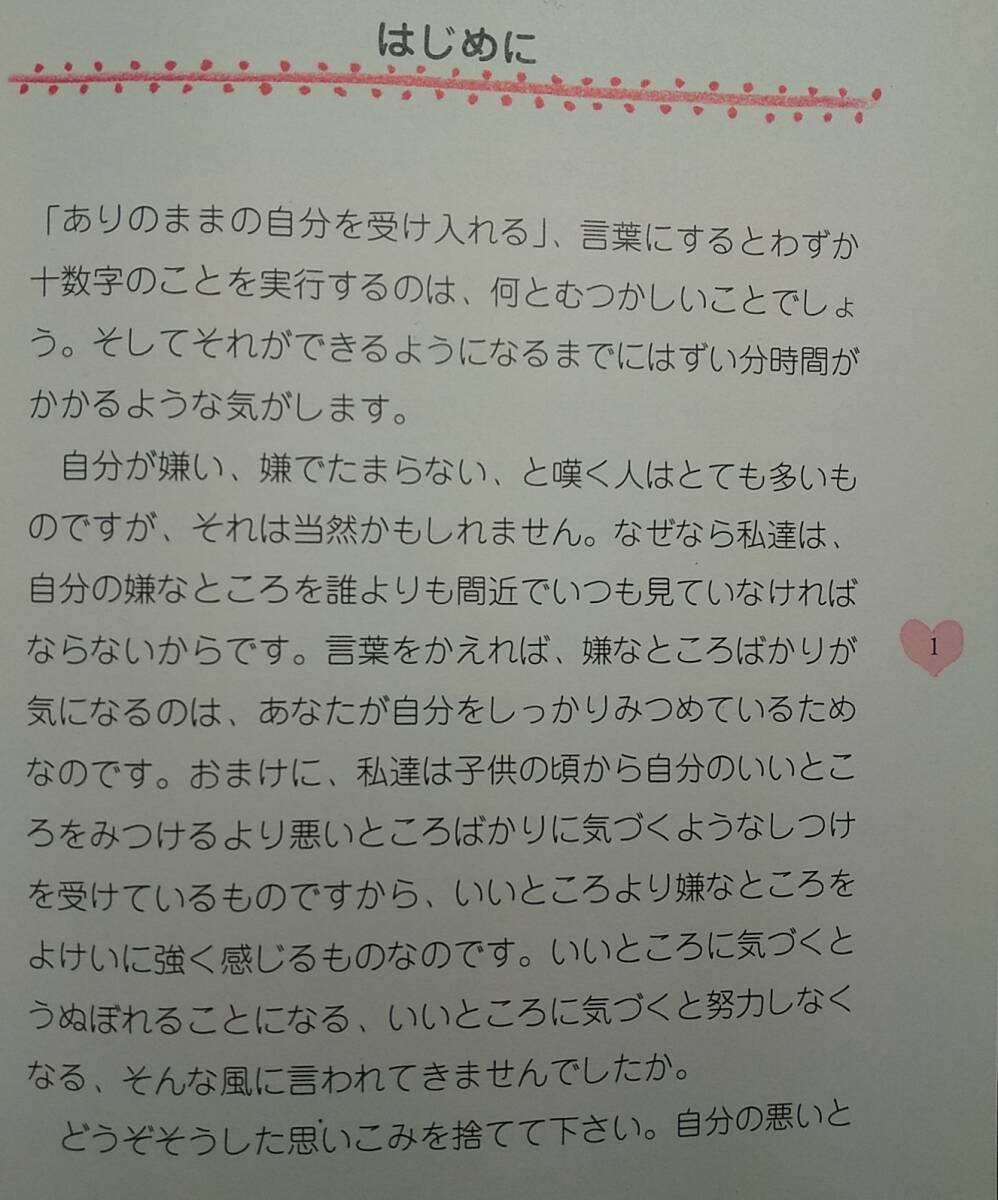 はじめに
「ありのままの自分を受け入れる」、言葉にするとわずか
十数字のことを実行するのは、何とむつかしいことでしょ
う。そしてそれができるようになるまでにはずい分時間が
かかるような気がします。
自分が嫌い、嫌でたまらない、と嘆く人はとても多いも
のですが、それは当然かもしれません。なぜなら私達は、
自分の嫌なところを誰よりも間近でいつも見ていなければ
ならないからです。言葉をかえれば、嫌なところばかりが
気になるのは、あなたが自分をしっかりみつめているため
なのです。おまけに、私達は子供の頃から自分のいいとこ
ろをみつけるより悪いところばかりに気づくようなしつけ
を受けているものですから、いいところより嫌なところを
よけいに強く感じるものなのです。いいところに気づくと
うぬぼれることになる、いいところに気づくと努力しなく
なる、そんな風に言われてきませんでしたか。
どうぞそうした思いこみを捨てて下さい。自分の悪いと
1